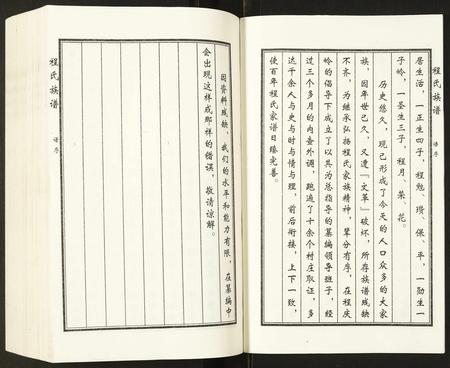 程氏族谱
谱序
居生活，一正生四子，程勉、瓒、保、平，一勋生一
子岭，一圣生三子，程月、荣、花。
历史悠久，现已形成了今天的人口众多的大家
族，因年世已久，又遭「文革」破坏，所存族谱残缺
不齐，为继承弘扬程氏家族精神，辈分有序，在程庆
岭的倡导下成立了以其为总指导的纂编领导班子，经
过三个多月的内查外调，跑遍了十余个村庄取证，多
达千余人与史与时与情与理，前后衔接，上下一致，
使百年程氏家谱日臻完善。
因资料残缺，我们的水平和能力有限，在纂编中
会出现这样或那样的错误，敬请谅解。
程氏族谱
谱序